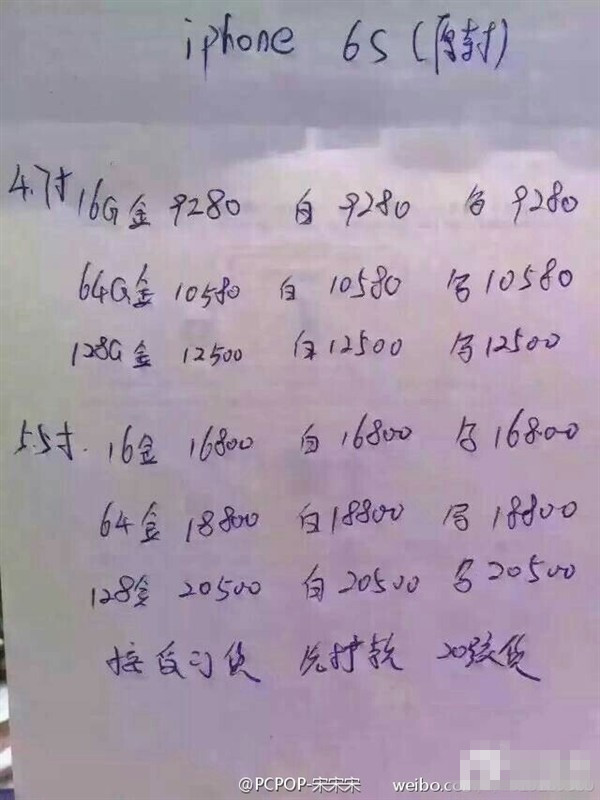 iphone 6S (原封)
4.7寸 16G金 9280 白 9280 9280
64G金 10580 白 10580 10580
128G金 12500 白 12500 12500
5.5寸. 16金 16800 白 16800 16800
64金 18800 白 18800 18800
128金 20500 白 20500 20500
接受订货 先打款 20号发货
@PCPOP-宋宋宋 weibo.co